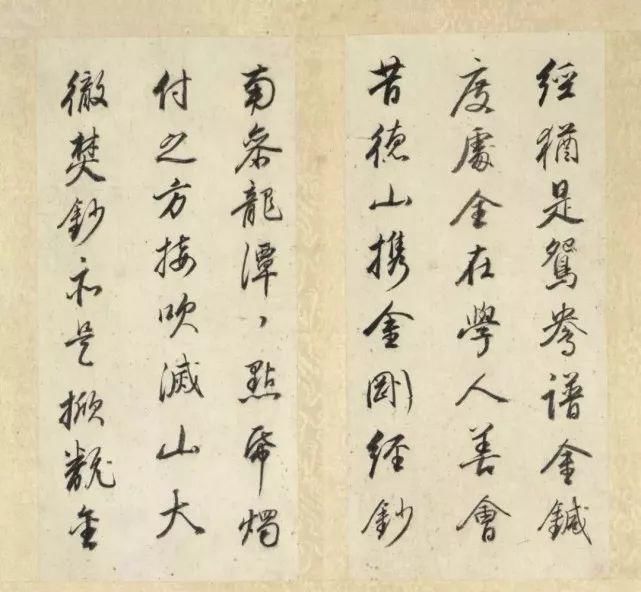 經猶是鴛鴦譜金鍼
度處全在學人善會
昔德山携金剛經鈔
南叅龍潭〻點帋燭
付之方接吹滅山大
徹焚鈔亦是掀飜金